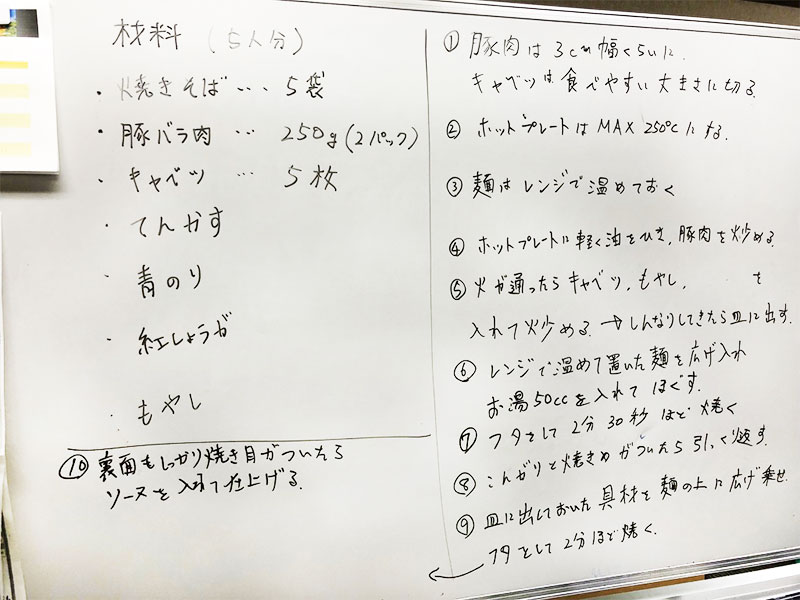 材料（5人分）
・焼きそば・・・5袋
・豚バラ肉・・・250g(2パック)
・キャベツ・・・5枚
・てんかす
・青のり
・紅しょうが
・もやし
① 豚肉は3cm幅くらいに
キャベツは食べやすい大きさに切る
② ホットプレートはMAX250℃にする
③ 麺はレンジで温めておく
④ ホットプレートに軽く油をひき、豚肉を炒める
⑤ 火が通ったらキャベツ、もやし、を
入れて炒める→しんなりしてきたら皿に出す。
⑥ レンジで温めて置いた麺を広げ入れ
お湯50ccを入れてほぐす。
⑦ フタをして2分30秒ほど焼く
⑧ こんがりと焼きめがついたら引っくり返す。
⑨ 皿に出しておいた具材を麺の上に広げ乗せ
フタをして2分ほど焼く。
⑩ 裏面もしっかり焼き目がついたら
ソースを入れて仕上げる。